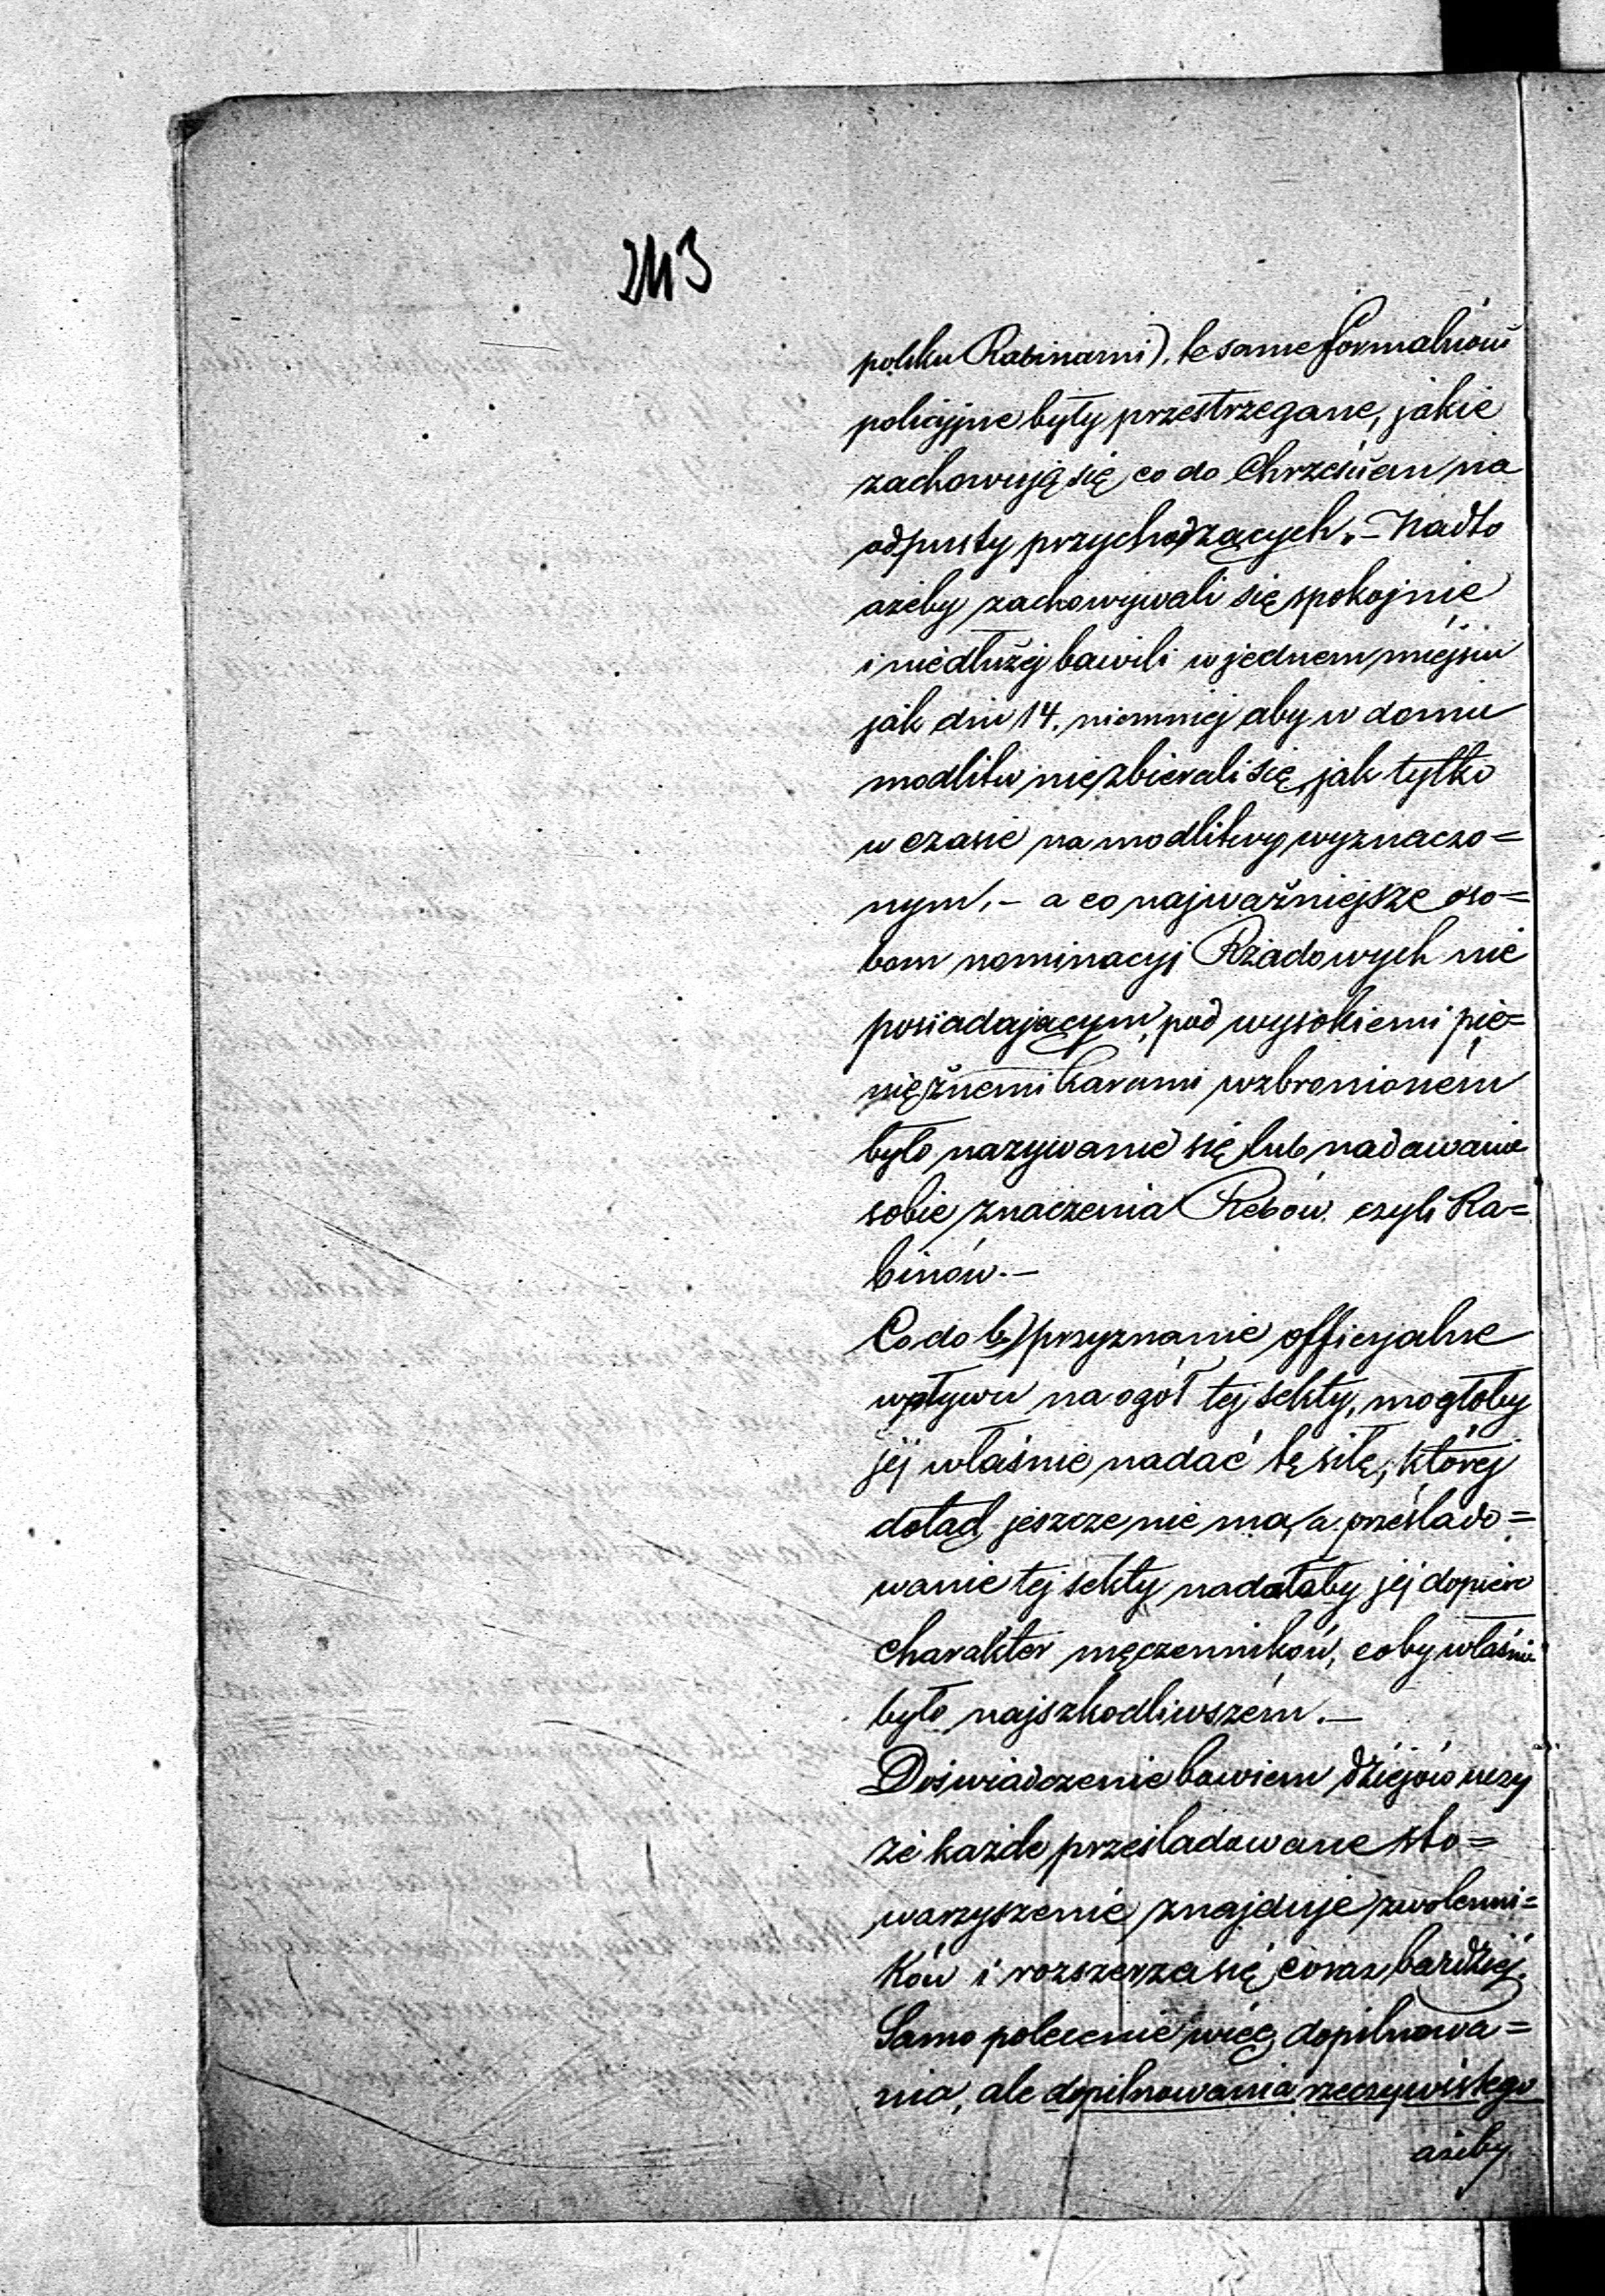 243
polsku Rabinami), te same formalności
policyjne były przestrzegane, jakie
zachowują się co do Chrześcian na
odpusty przychodzących. – Nadto
ażeby zachowywali się spokojnie
i niedłużej bawili w jednem miejscu
jak dni 14. niemniej aby w domu
modlitw nie zbierali się, jak tylko
w czasie na modlitwy wyznaczo=
nym, – a co najważniejsze oso=
bom nominacyj Rządowych nie
posiadającym, pod wysokiemi pie=
niężnemi karami wzbronionem
było nazywanie się lub nadawanie
sobie znaczenia Rebów czyli Ra=
binów. –
Co do b) przyznanie officjalne
wpływu na ogół tej sekty, mogłoby
jej właśnie nadać tę siłę, której
dotąd jeszcze nie ma, a prześlado=
wanie tej sekty nadałoby jej dopiero
charakter męczenników, coby właśnie
było najszkodliwszém. –
Doświadczenie bowiem dziejów uczy
że każde prześladowane sto=
warzyszenie znajduje zwolenni=
ków i rozszerza się coraz bardziej.
Samo polecenie więc dopilnowa=
nia, ale dopilnowania rzeczywistego
ażeby